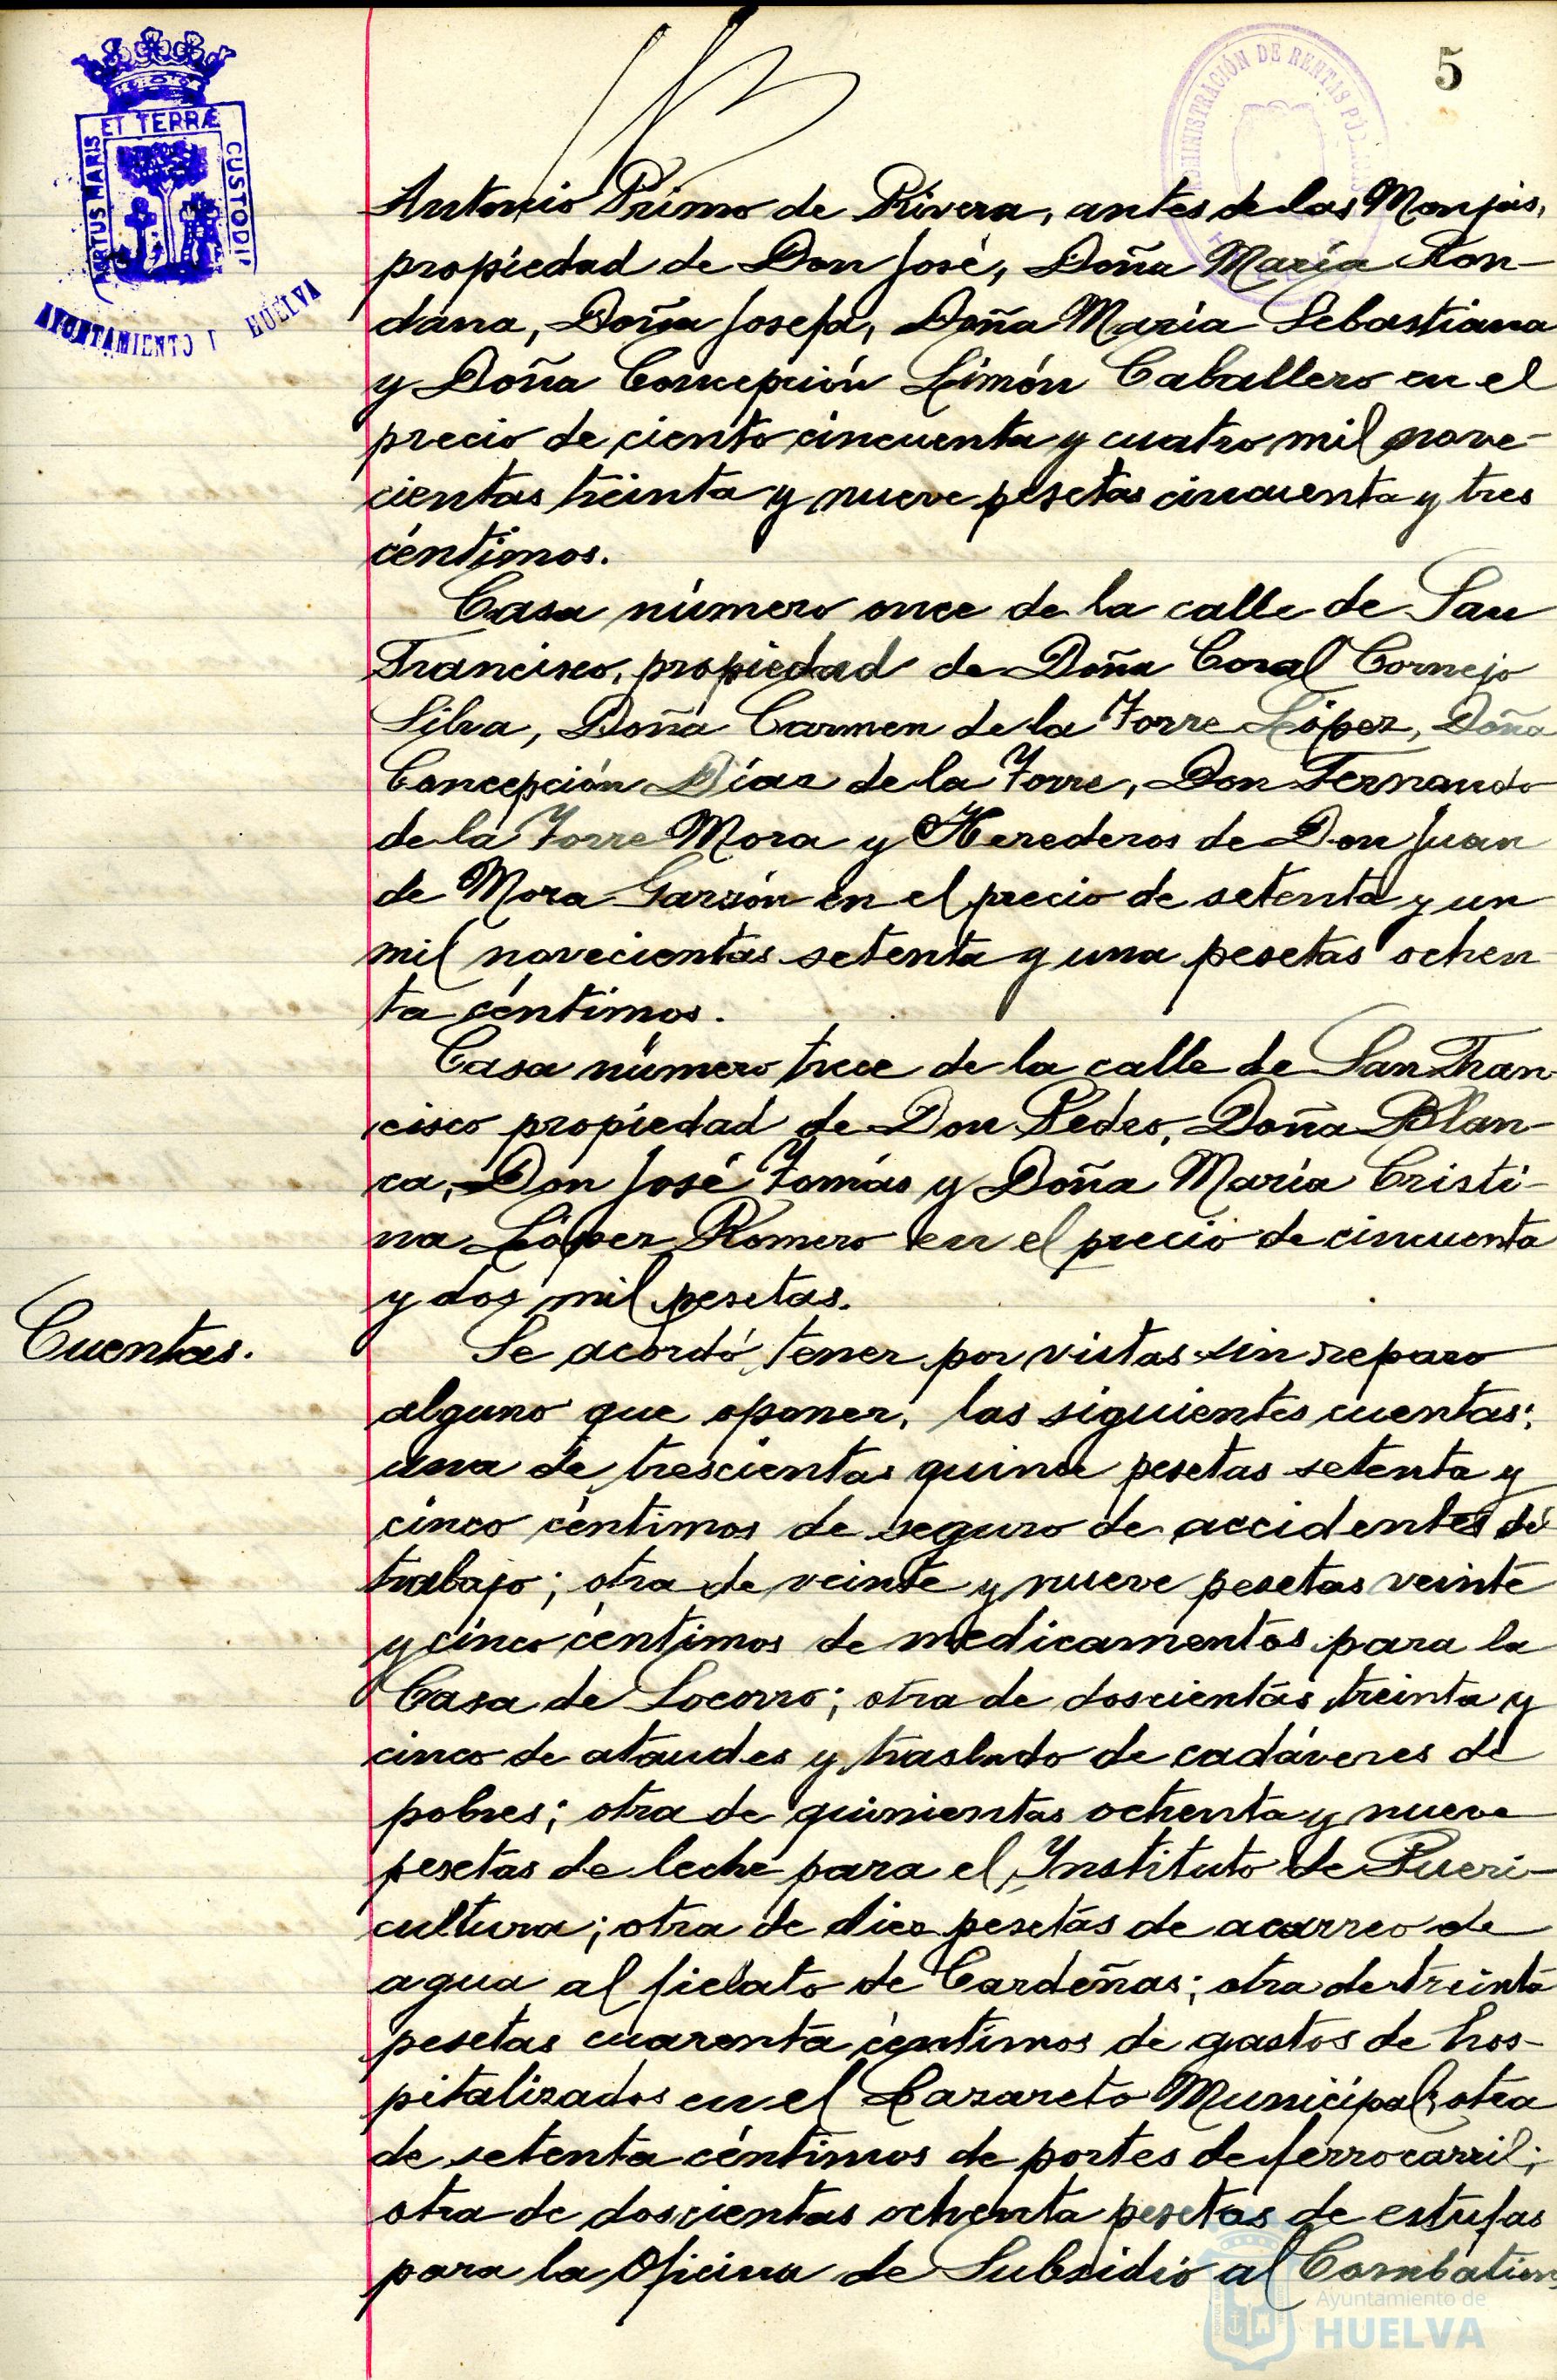 5
ADMINISTRACIÓN DE RENTAS PÚ
ET TERRÆ
PORTUS MARIS
CUSTODI
AYUNTAMIENTO D HUELVA
Antonio Primo de Rivera, antes de las Monjas,
propiedad de Don José, Doña María Ron-
dana, Doña Josefa, Doña María Sebastiana
y Doña Concepción Limón Caballero en el
precio de ciento cincuenta y cuatro mil nove-
cientas treinta y nueve pesetas cincuenta y tres
céntimos.
Casa número once de la calle de San
Francisco, propiedad de Doña Coral Cornejo
Silva, Doña Carmen de la Torre López, Doña
Concepción Díaz de la Torre, Don Fernando
de la Torre Mora y Herederos de Don Juan
de Mora Garzón en el precio de setenta y un
mil novecientas setenta y una pesetas ochen
ta céntimos.
Casa número trece de la calle de San Fran
cisco propiedad de Don Pedro, Doña Blan-
ca, Don José Tomás y Doña María Cristi-
na López Romero en el precio de cincuenta
y dos mil pesetas.
Cuentas.
Se acordó tener por vistas sin reparo
alguno que oponer, las siguientes cuentas:
una de trescientas quince pesetas setenta y
cinco céntimos de seguro de accidentes de
trabajo; otra de veinte y nueve pesetas veinte
y cinco céntimos de medicamentos para la
Casa de Socorro; otra de doscientas treinta y
cinco de ataudes y traslado de cadáveres de
pobres; otra de quinientas ochenta y nueve
pesetas de leche para el Instituto de Pueri-
cultura; otra de diez pesetas de acarreo de
agua al fielato de Cardeñas; otra de treinta
pesetas cuarenta céntimos de gastos de hos-
pitalizados en el Lazareto Municipal; otra
de setenta céntimos de portes de ferrocarril;
otra de doscientas ochenta pesetas de estufas
para la Oficina de Subsidio al Combatien
Ayuntamiento de
HUELVA